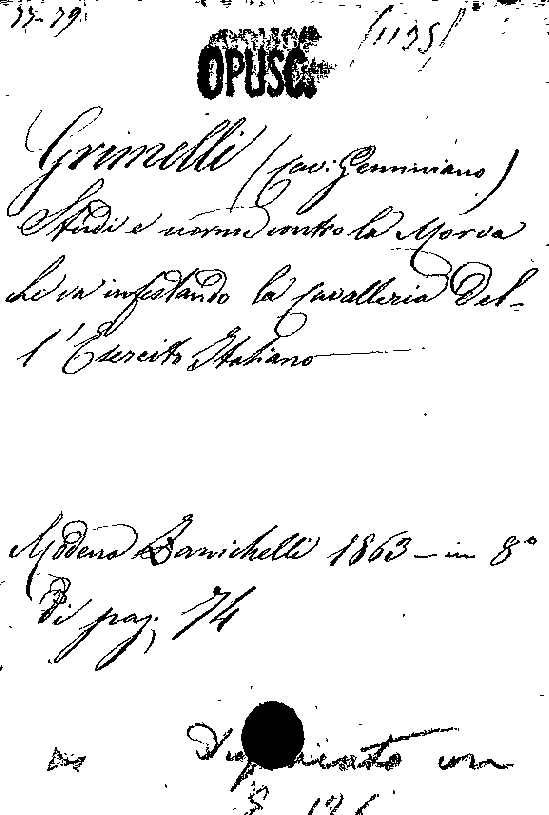 33-79 (1135)
OPUSC.
Grimelli (Cav: Geminiano)
Studi e norme contro la Morva
che va infestando la Cavalleria Del-
l'Esercito Italiano
Modena Zanichelli 1863 - in 8°
Di pag. 74
in